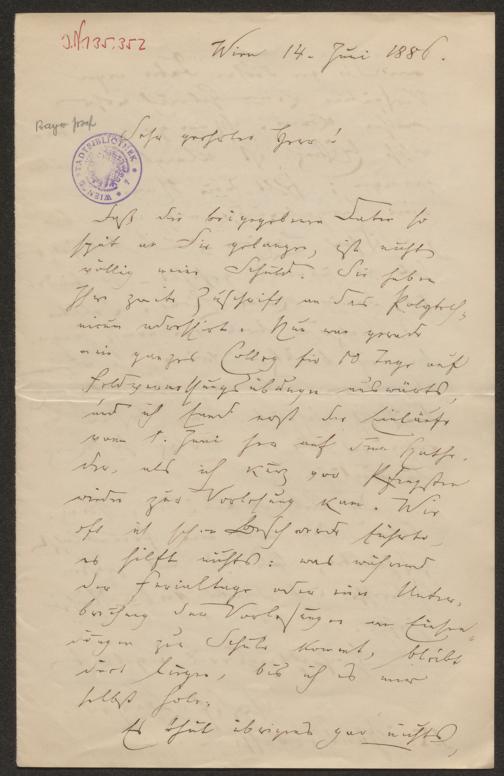 J.N. 135.352
Wien 14. Juni 1886.
Bayer Josef
Sehr geehrter Herr!
WIENER STADTBIBLIOTHEK
Daß die beigegebenen Daten so
spät an Sie gelangen, ist nicht
völlig meine Schuld. Sie haben
Ihre zweite Zuschrift an das Polytech-
nicum adressirt. Nun war gerade
mein ganzes Colleg für 10 Tage auf
Feldmessungsübungen auswärts,
und ich fand erst die Einläufe
vom 1. Juni her auf dem Kathe-
der, als ich kurz vor Pfingsten
wieder zur Vorlesung kam. Wie
oft ich schon Beschwerde führte,
es hilft nichts: was während
der Ferialtage oder einer Unter-
brechung der Vorlesungen an Einsen-
dungen zur Schule kommt, bleibt
dort liegen, bis ich es mir
selbst hole.
Es thut übrigens gar nichts,